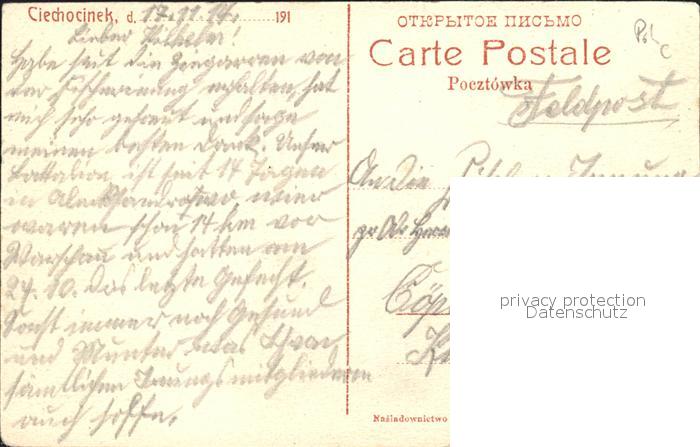 Ciechocinek, d. 17.11.14. 191
Lieber Wilhelm!
Habe heut die Zigarren von
der Fischerinnung erhalten, hat
mich sehr gefreut und sage
meinen besten Dank. Unser
Battalion ist seit 14 Tagen
in wier
waren schon 14 km vor
Warschau und hatten am
24. 10. Das letzte Gefecht.
Sonst immer noch Gesund
und Munter was Ihr
sämtlichen Innungsmitgliedern
auch hoffe.
ОТКРЫТОЕ ПИСЬМО
Carte Postale
Pocztówka
Feldpost
An die Innung
Cöp
Naśladownictwo
privacy protection
Datenschutz